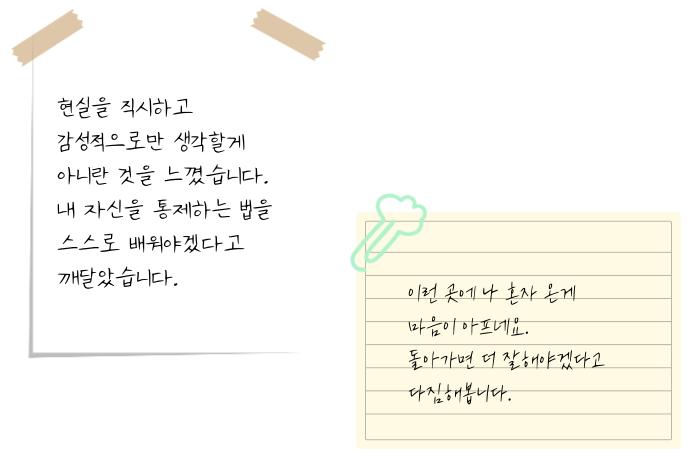 현실을 직시하고
감성적으로만 생각할게
아니란 것을 느꼈습니다.
내 자신을 통제하는 법을
스스로 배워야겠다고
깨달았습니다.
이런 곳에 나 혼자 온게
마음이 아프네요.
돌아가면 더 잘해야겠다고
다짐해봅니다.